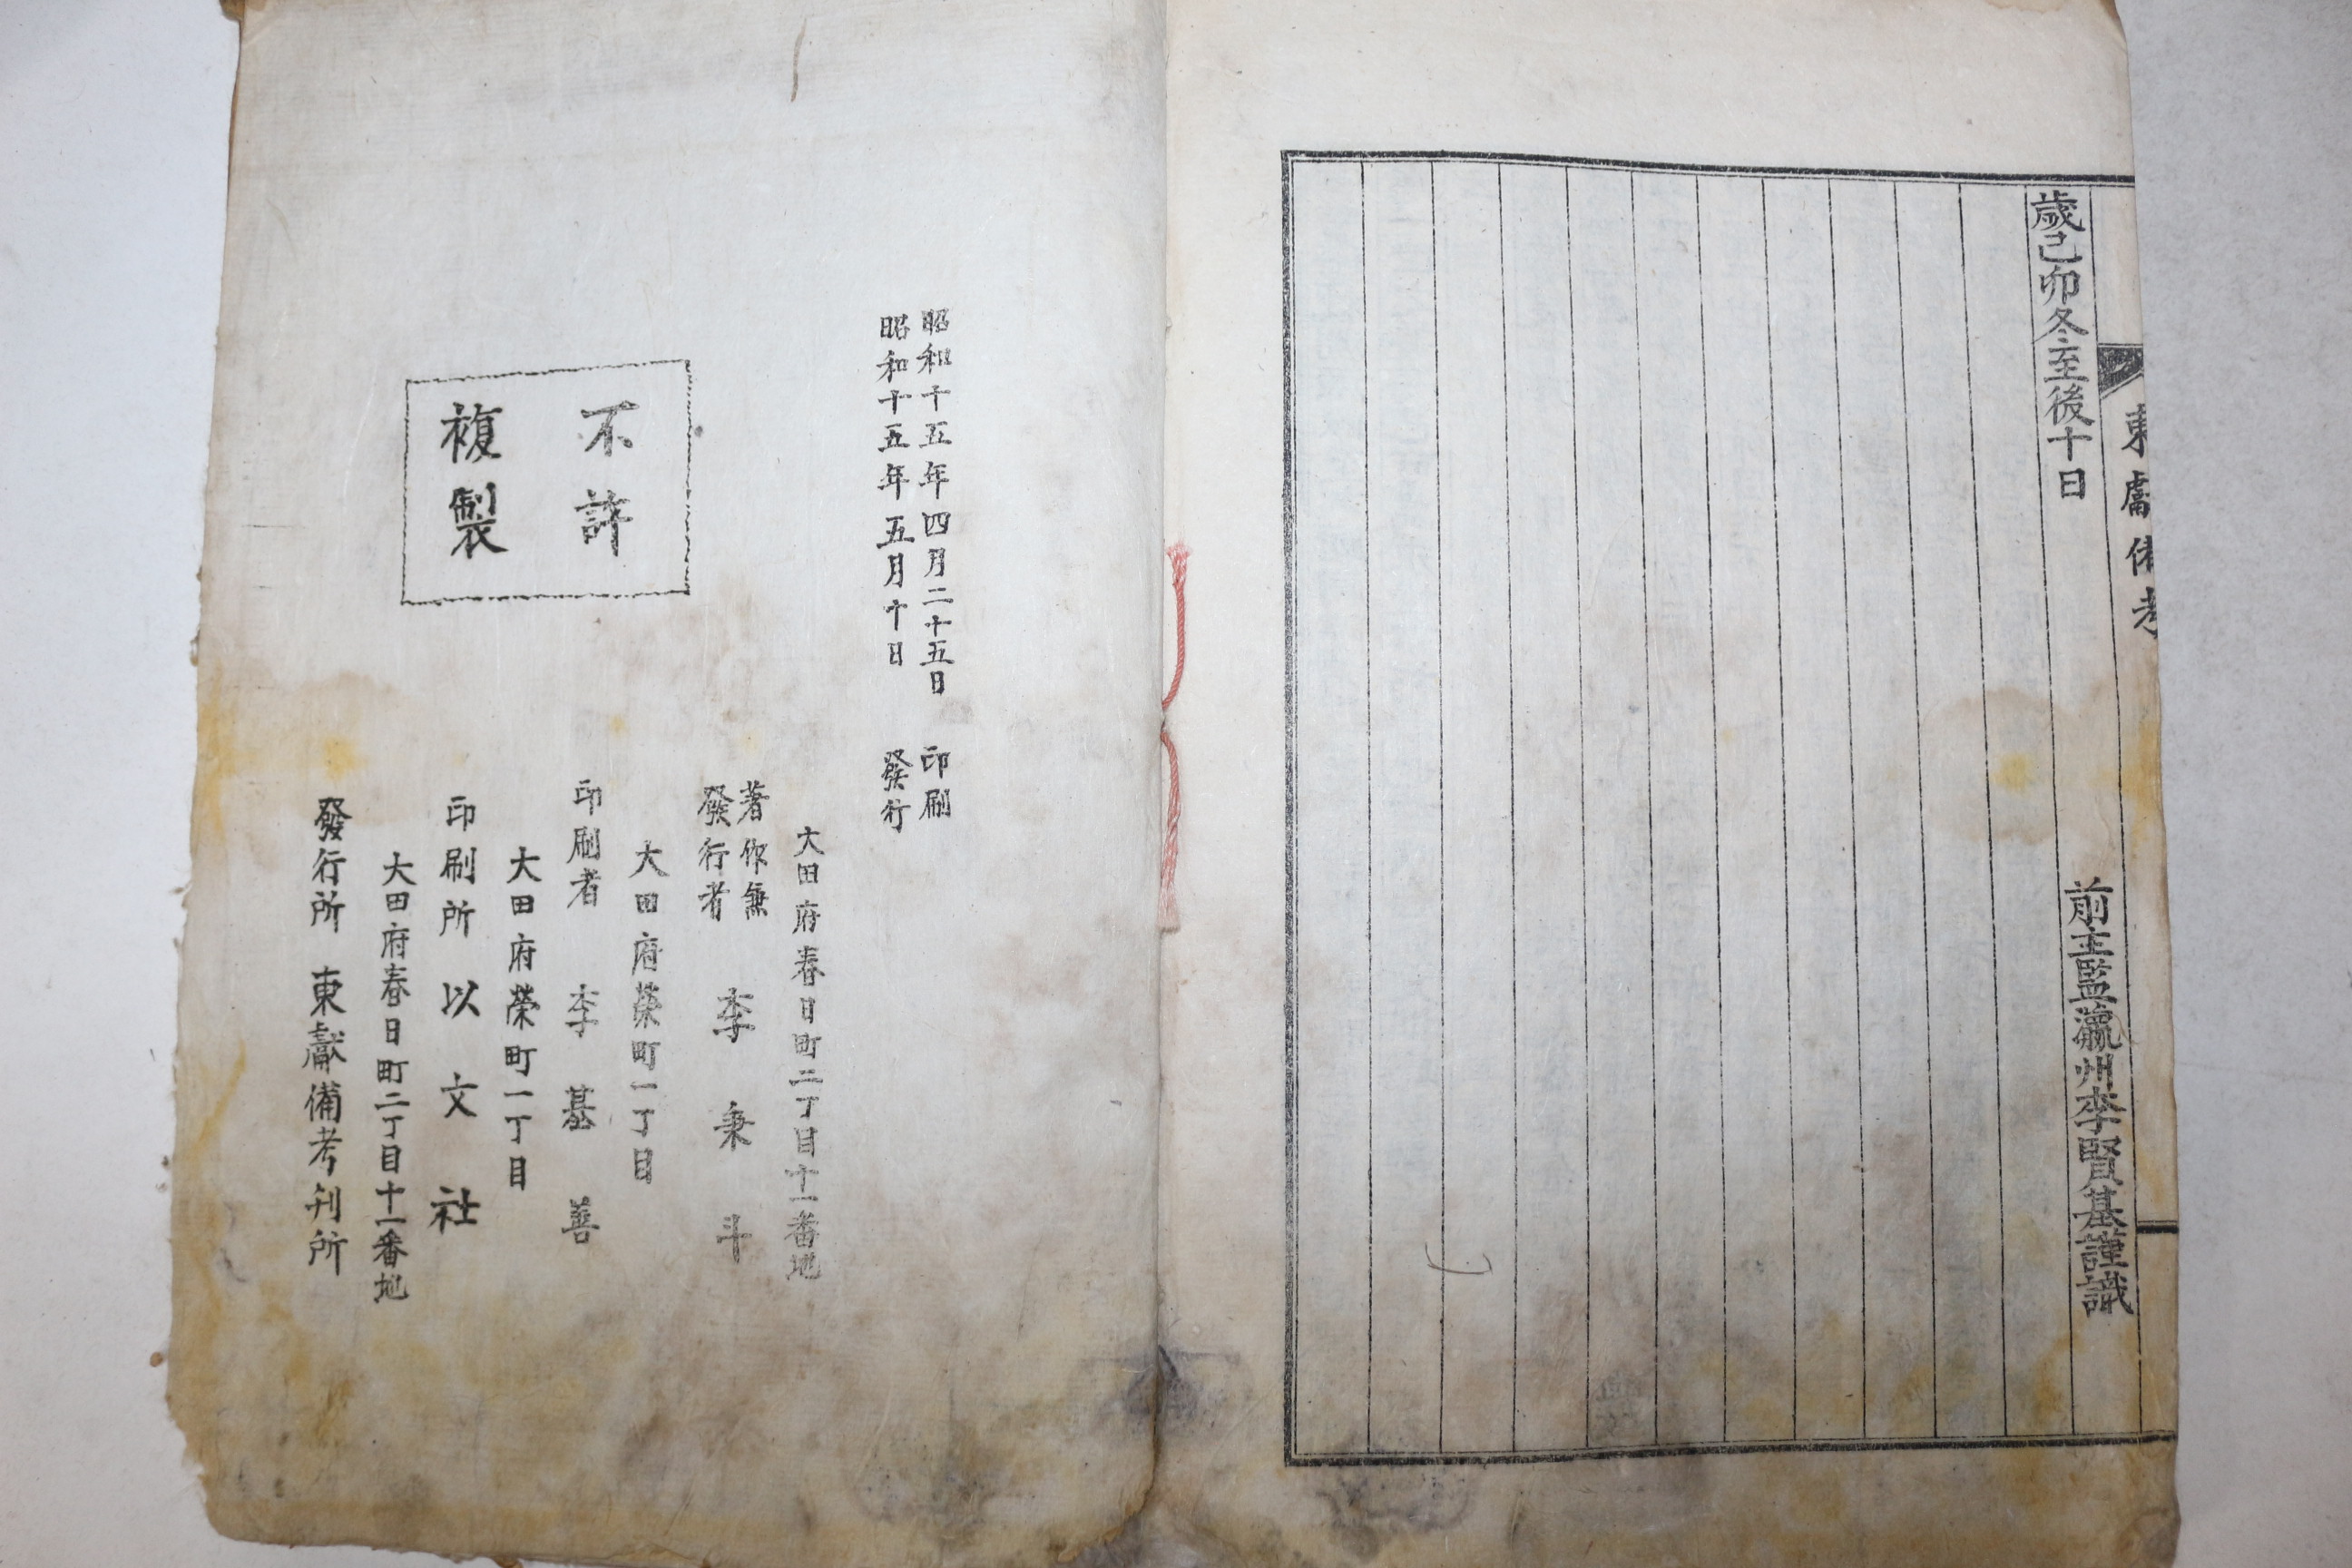 東獻備考
歲己卯冬至後十日
前主監瀛州李賢基謹識
昭和十五年四月二十五日 印刷
昭和十五年五月十日 發行
大田府春日町二丁目十一番地
著作兼
發行者 李秉斗
大田府榮町一丁目
印刷者 李基善
大田府榮町一丁目
印刷所 以文社
大田府春日町二丁目十一番地
發行所 東獻備考刊所
不許
複製